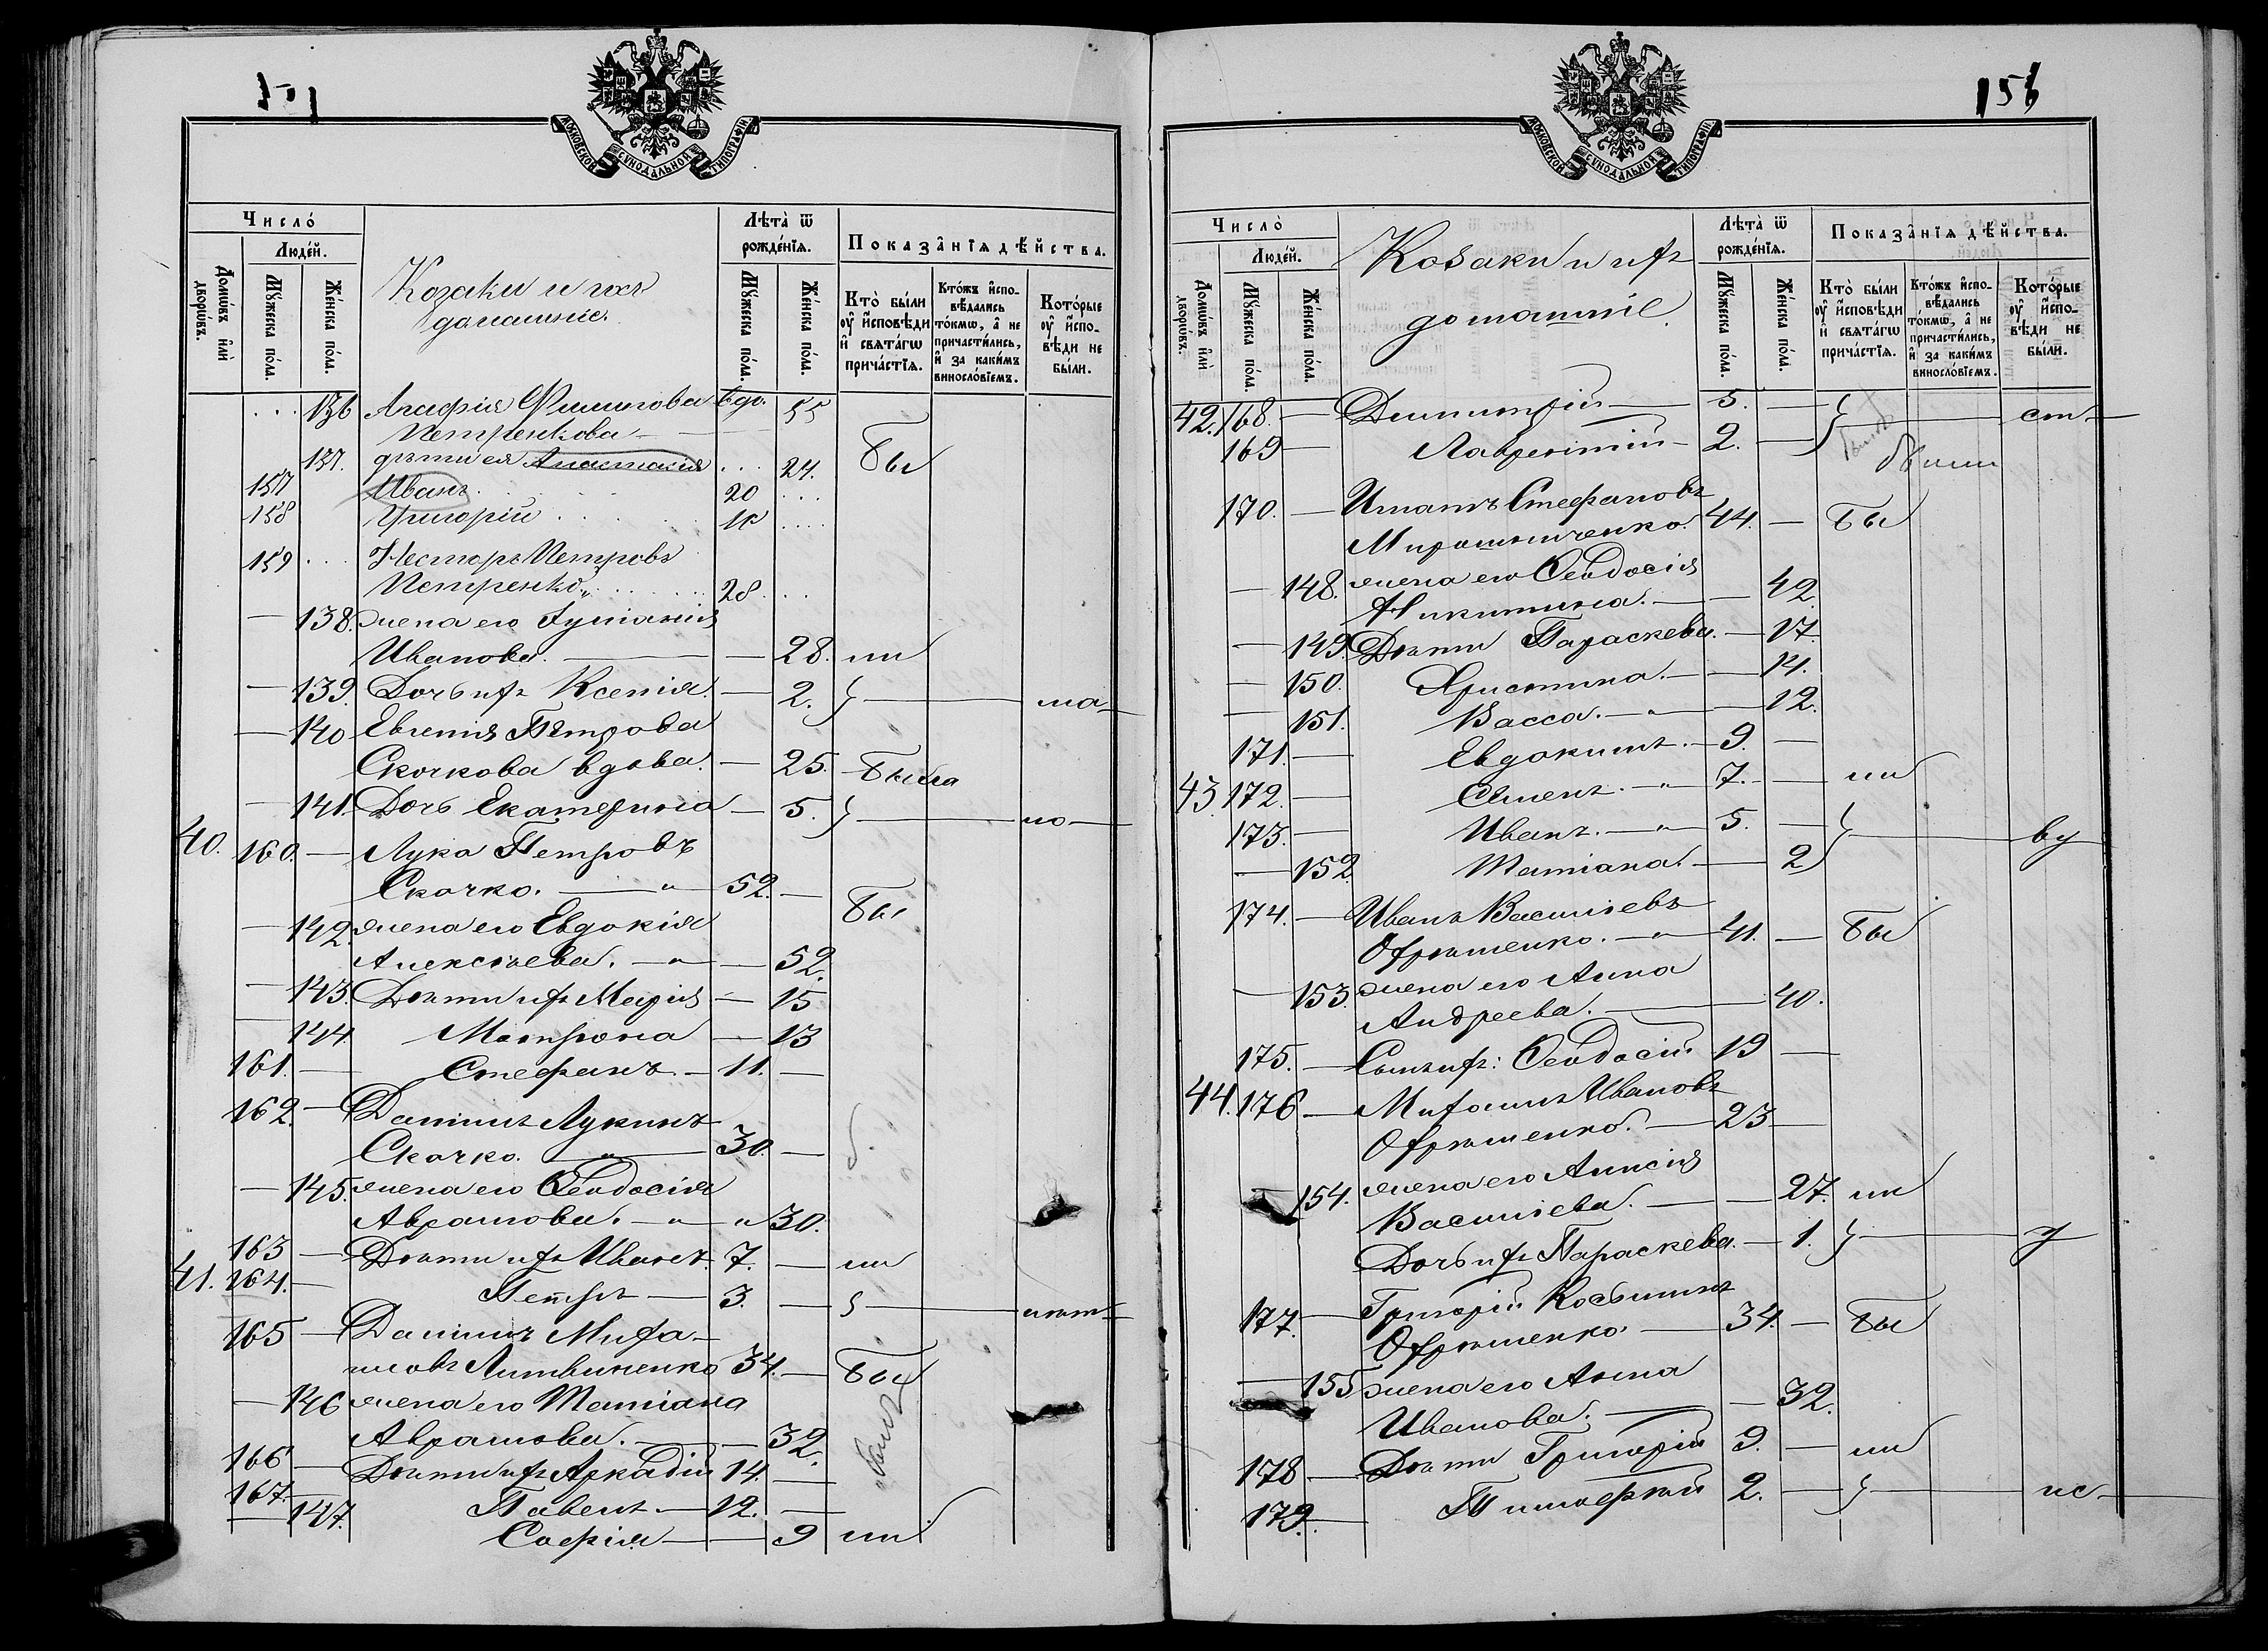 151
МОСКОВСКОЙ СѴНОДАЛЬНОЙ ТИПОГРАФІИ.
Число̀
Людей.
Домѡвъ и҆лѝ дворѡвъ.
Мꙋжеска по́ла.
Же́нска по́ла.
Козаки и ихъ
домашніе.
Лѣта̀ ѿ рожде́нїѧ.
Мꙋжеска по́ла.
Же́нска по́ла.
Показа̑нїѧ дѣ́йства.
Кто̀ бы́ли оу҆ и҆сповѣди и҆ свѧта́гѡ прича́стїѧ.
Кто́жъ и҆сповѣдались то́кмѡ, а҆ не причасти́лись, и҆ за каки́мъ винословїемъ.
Кото́рые оу҆ и҆сповѣди не бы́ли.
136 Агафія Филипова вдо. 55
Петренкова
137. дѣти ея Анастасія 24. бы
157 Иванъ 20
158 Григорій 18
159 Несторъ Петровъ
Петренко 28
138. жена его Іуліанія
Иванова. 28. ли
139. Дочь ихъ Ксенія. 2. ма
140 Евгенія Петрова
Скочкова вдова. 25. была
141. Дочь Екатерина 5. ло
40. 160. Лука Петровъ
Скочко. 52. бы
142. жена его Евдокія
Алексѣева. 52.
143. Дѣти ихъ Марія 15
144 Матрона 13
161. Стефанъ 11.
162. Даніилъ Лукинъ
Скочко. 30.
145. жена его Ѳеодосія
Аврамова. 30.
163 Дѣти ихъ Иванъ 7. ли
41. 164. Петръ 3. лѣт
165 Даніилъ Миха-
иловъ Литвиненко 34. бы
146 жена его Татіана
Аврамова. 32.
166 Дѣти ихъ Аркадій 14.
167. Павелъ 12.
147. Софія 9 ли
156
МОСКОВСКОЙ СѴНОДАЛЬНОЙ ТИПОГРАФІИ.
Число̀
Людей.
Домѡвъ и҆лѝ дворѡвъ.
Мꙋжеска по́ла.
Же́нска по́ла.
Козаки и ихъ
домашніе.
Лѣта̀ ѿ рожде́нїѧ.
Мꙋжеска по́ла.
Же́нска по́ла.
Показа̑нїѧ дѣ́йства.
Кто̀ бы́ли оу҆ и҆сповѣди и҆ свѧта́гѡ прича́стїѧ.
Кто́жъ и҆сповѣдались то́кмѡ, а҆ не причасти́лись, и҆ за каки́мъ винословїемъ.
Кото́рые оу҆ и҆сповѣди не бы́ли.
42. 168. Димитрій 5. ст
169 Лаврентій 2.
170. Игнатъ Стефановъ
Мирошниченко. 44. бы
148. жена его Ѳеодосія
Никитина. 42.
149. Дѣти Параскева. 17.
150. Христина. 14.
151. Васса. 12.
171. Евдокимъ. 9.
43. 172. Сименъ. 7. ли
173. Иванъ. 5. ву
152. Татіана. 2
174. Иванъ Васильевъ
Охрѣменко. 41. бы
153. жена его Анна
Андреева. 40.
175. Сынъ ихъ: Ѳеодосій 19
44. 176 Михаилъ Ивановъ
Охрѣменко. 23
154. жена его Анисія
Васильева. 27. ли
Дочь ихъ Параскева. 1. у
177. Григорій Косьминъ
Охрѣменко. 34. бы
155 жена его Анна
Иванова. 32.
178 Дѣти Григорій 9. ли
179. Тимоѳей 2. лѣ